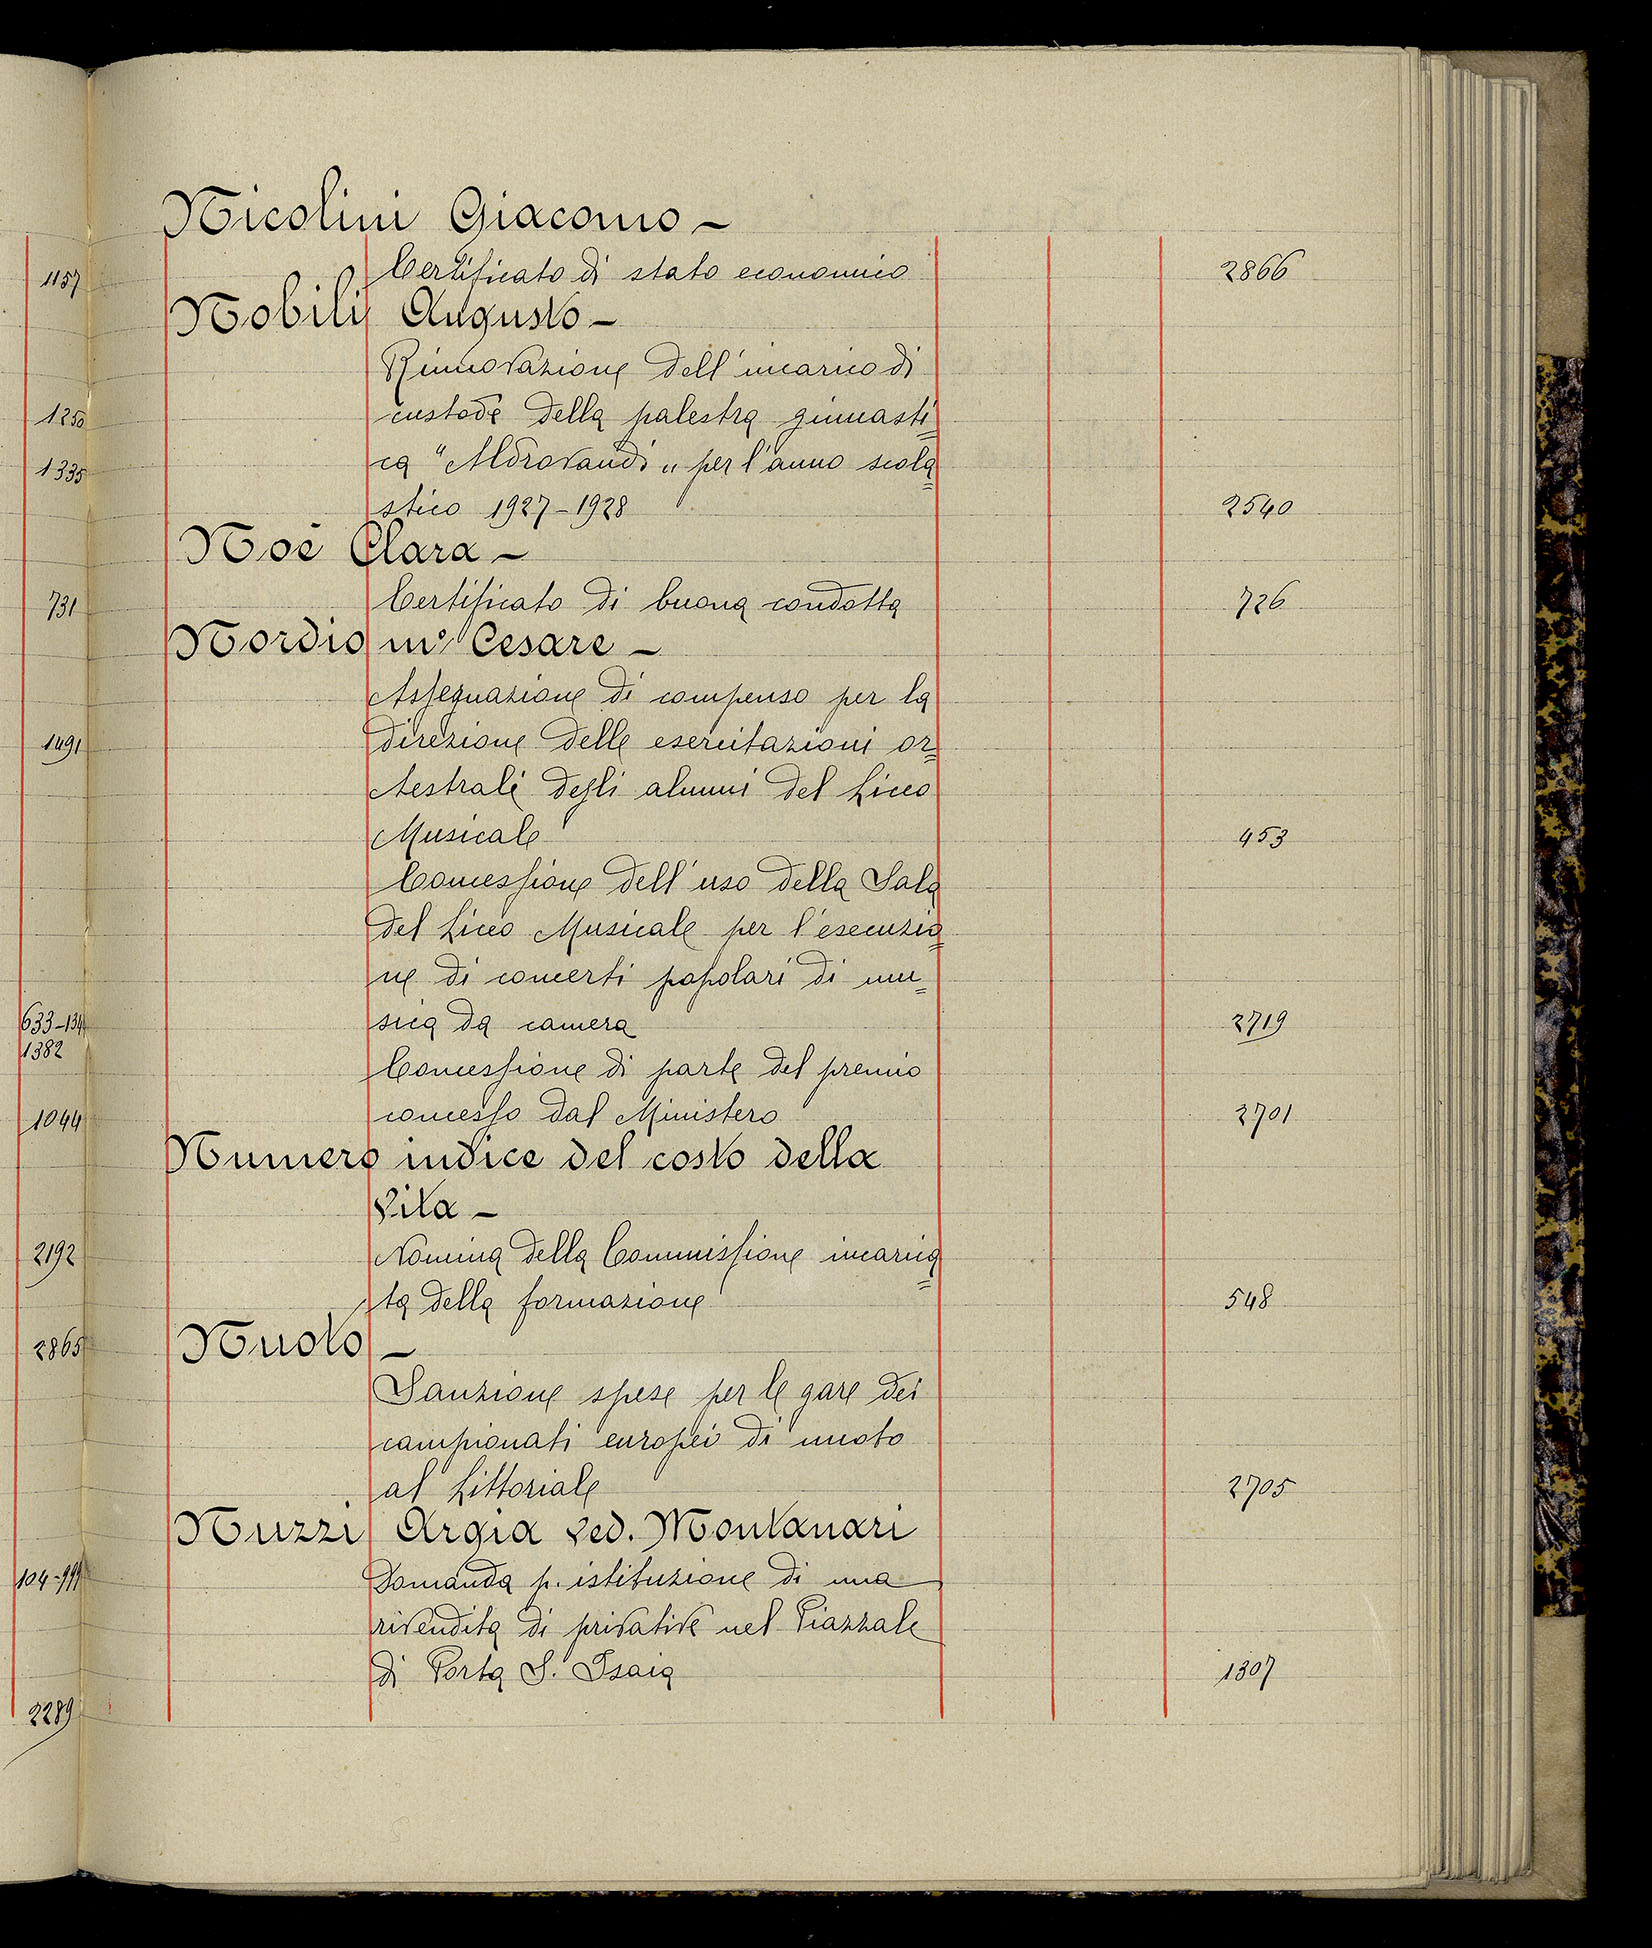 1157
1250
1335
731
1491
633-134
1382
1044
2192
2865
104-999
2289
Nicolini Giacomo -
Certificato di stato economico 2866
Nobili Augusto -
Rinnovazione dell'incarico di
custode della palestra ginnasti=
ca "Aldrovandi" per l'anno scola=
stico 1927-1928 2540
Noè Clara -
Certificato di buona condotta 726
Nordio mº Cesare -
Assegnazione di compenso per la
direzione delle esercitazioni or=
chestrali degli alunni del Liceo
Musicale 453
Concessione dell'uso della Sala
del Liceo Musicale per l'esecuzio=
ne di concerti popolari di mu=
sica da camera 2719
Concessione di parte del premio
concesso dal Ministero 2701
Numero indice del costo della
Vita -
Nomina della Commissione incarica=
ta della formazione 548
Nuoto -
Sanzione spese per le gare dei
campionati europei di nuoto
al Littoriale 2705
Nuzzi Argia ved. Montanari
Domanda p. istituzione di una
rivendita di privative nel Piazzale
di Porta S. Isaia 1307